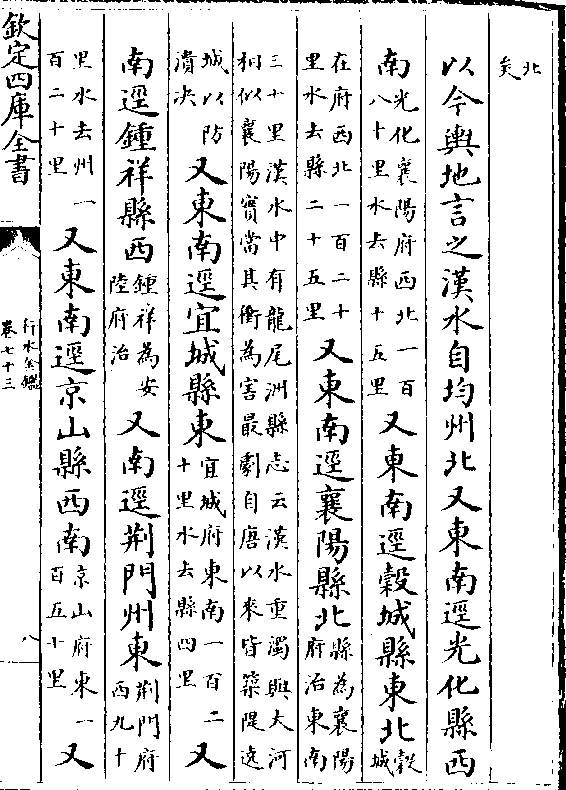 北
矣
以今輿地言之漢水自均州北又東南逕光化縣西
南光化襄陽府西北一百八十里水去縣十五里又東南逕穀城縣東北穀城
在府西北一百二十里水去縣二十五里又東南逕襄陽縣北縣為襄陽府治東南
三十里漢水中有龍尾洲縣志云漢水重濁與大河
相似襄陽實當其衝為害最劇自唐以來皆築隄遶
城以防潰決又東南逕宜城縣東宜城府東南一百二十里水去縣四里又
南逕鍾祥縣西鍾祥為安陸府治又南逕荆門州東荆門府西九十
里水去州一百二十里又東南逕京山縣西南京山府東一百五十里又
欽定四庫全書
行水金鑑
卷七十三
八